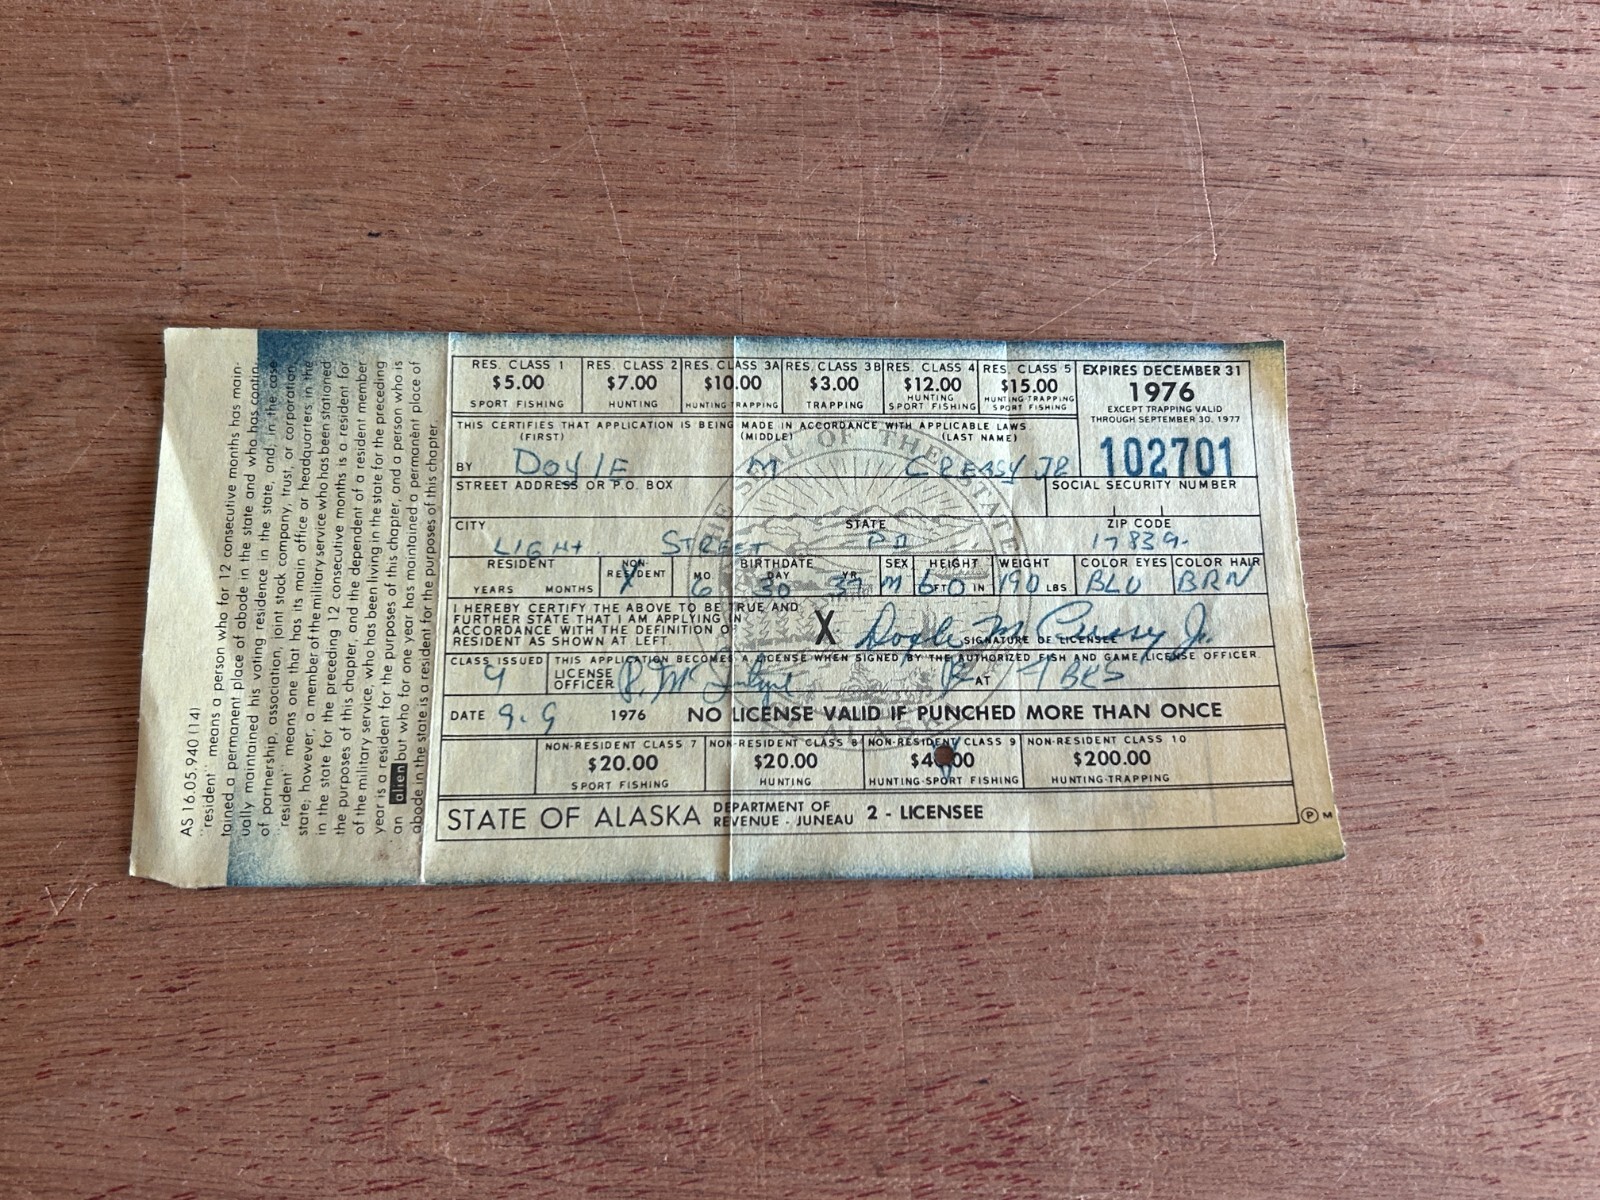 AS 16.05.940 (14)
"resident" means a person who for 12 consecutive months has main-
tained a permanent place of abode in the state and who has contin-
ually maintained his voting residence in the state, and, in the case
of partnership, association, joint stock company, trust, or corporation,
"resident" means one that has its main office or headquarters in the
state; however, a member of the military service who has been stationed
in the state for the preceding 12 consecutive months is a resident for
the purposes of this chapter, and the dependent of a resident member
of the military service, who has been living in the state for the preceding
year is a resident for the purposes of this chapter, and a person who is
an alien but who for one year has maintained a permanent place of
abode in the state is a resident for the purposes of this chapter.
RES. CLASS 1 RES. CLASS 2 RES. CLASS 3A RES. CLASS 3B RES. CLASS 4 RES. CLASS 5 EXPIRES DECEMBER 31
$5.00 $7.00 $10.00 $3.00 $12.00 $15.00 1976
SPORT FISHING HUNTING HUNTING TRAPPING TRAPPING HUNTING SPORT FISHING HUNTING-TRAPPING SPORT FISHING
EXCEPT TRAPPING VALID
THROUGH SEPTEMBER 30, 1977
THIS CERTIFIES THAT APPLICATION IS BEING MADE IN ACCORDANCE WITH APPLICABLE LAWS
(FIRST) (MIDDLE) (LAST NAME)
BY DOYLE M CREASY JR 102701
STREET ADDRESS OR P.O. BOX SOCIAL SECURITY NUMBER
CITY STATE ZIP CODE
LIGHT STREET PA 17839
RESIDENT NON-RESIDENT BIRTHDATE SEX HEIGHT WEIGHT COLOR EYES COLOR HAIR
YEARS MONTHS X MO. 6 DAY 30 YR. 37 M 6 FT 0 IN 190 LBS BLU BRN
I HEREBY CERTIFY THE ABOVE TO BE TRUE AND
FURTHER STATE THAT I AM APPLYING IN
ACCORDANCE WITH THE DEFINITION OF
RESIDENT AS SHOWN AT LEFT.
X Doyle M Creasy Jr.
SIGNATURE OF LICENSEE
CLASS ISSUED THIS APPLICATION BECOMES A LICENSE WHEN SIGNED BY THE AUTHORIZED FISH AND GAME LICENSE OFFICER
9 LICENSE OFFICER AT
DATE 9-9 1976 NO LICENSE VALID IF PUNCHED MORE THAN ONCE
NON-RESIDENT CLASS 7 NON-RESIDENT CLASS 8 NON-RESIDENT CLASS 9 NON-RESIDENT CLASS 10
$20.00 $20.00 $200.00
SPORT FISHING HUNTING HUNTING-SPORT FISHING HUNTING-TRAPPING
STATE OF ALASKA DEPARTMENT OF REVENUE - JUNEAU 2 - LICENSEE
P M
THE SEAL OF THE STATE OF ALASKA